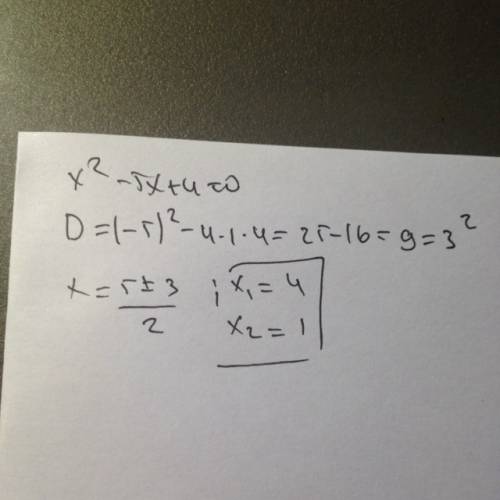 x² - 5x + 4 = 0
D = (-5)² - 4·1·4 = 25 - 16 = 9 = 3²
x = (5 ± 3)/2 ; x₁ = 4
x₂ = 1